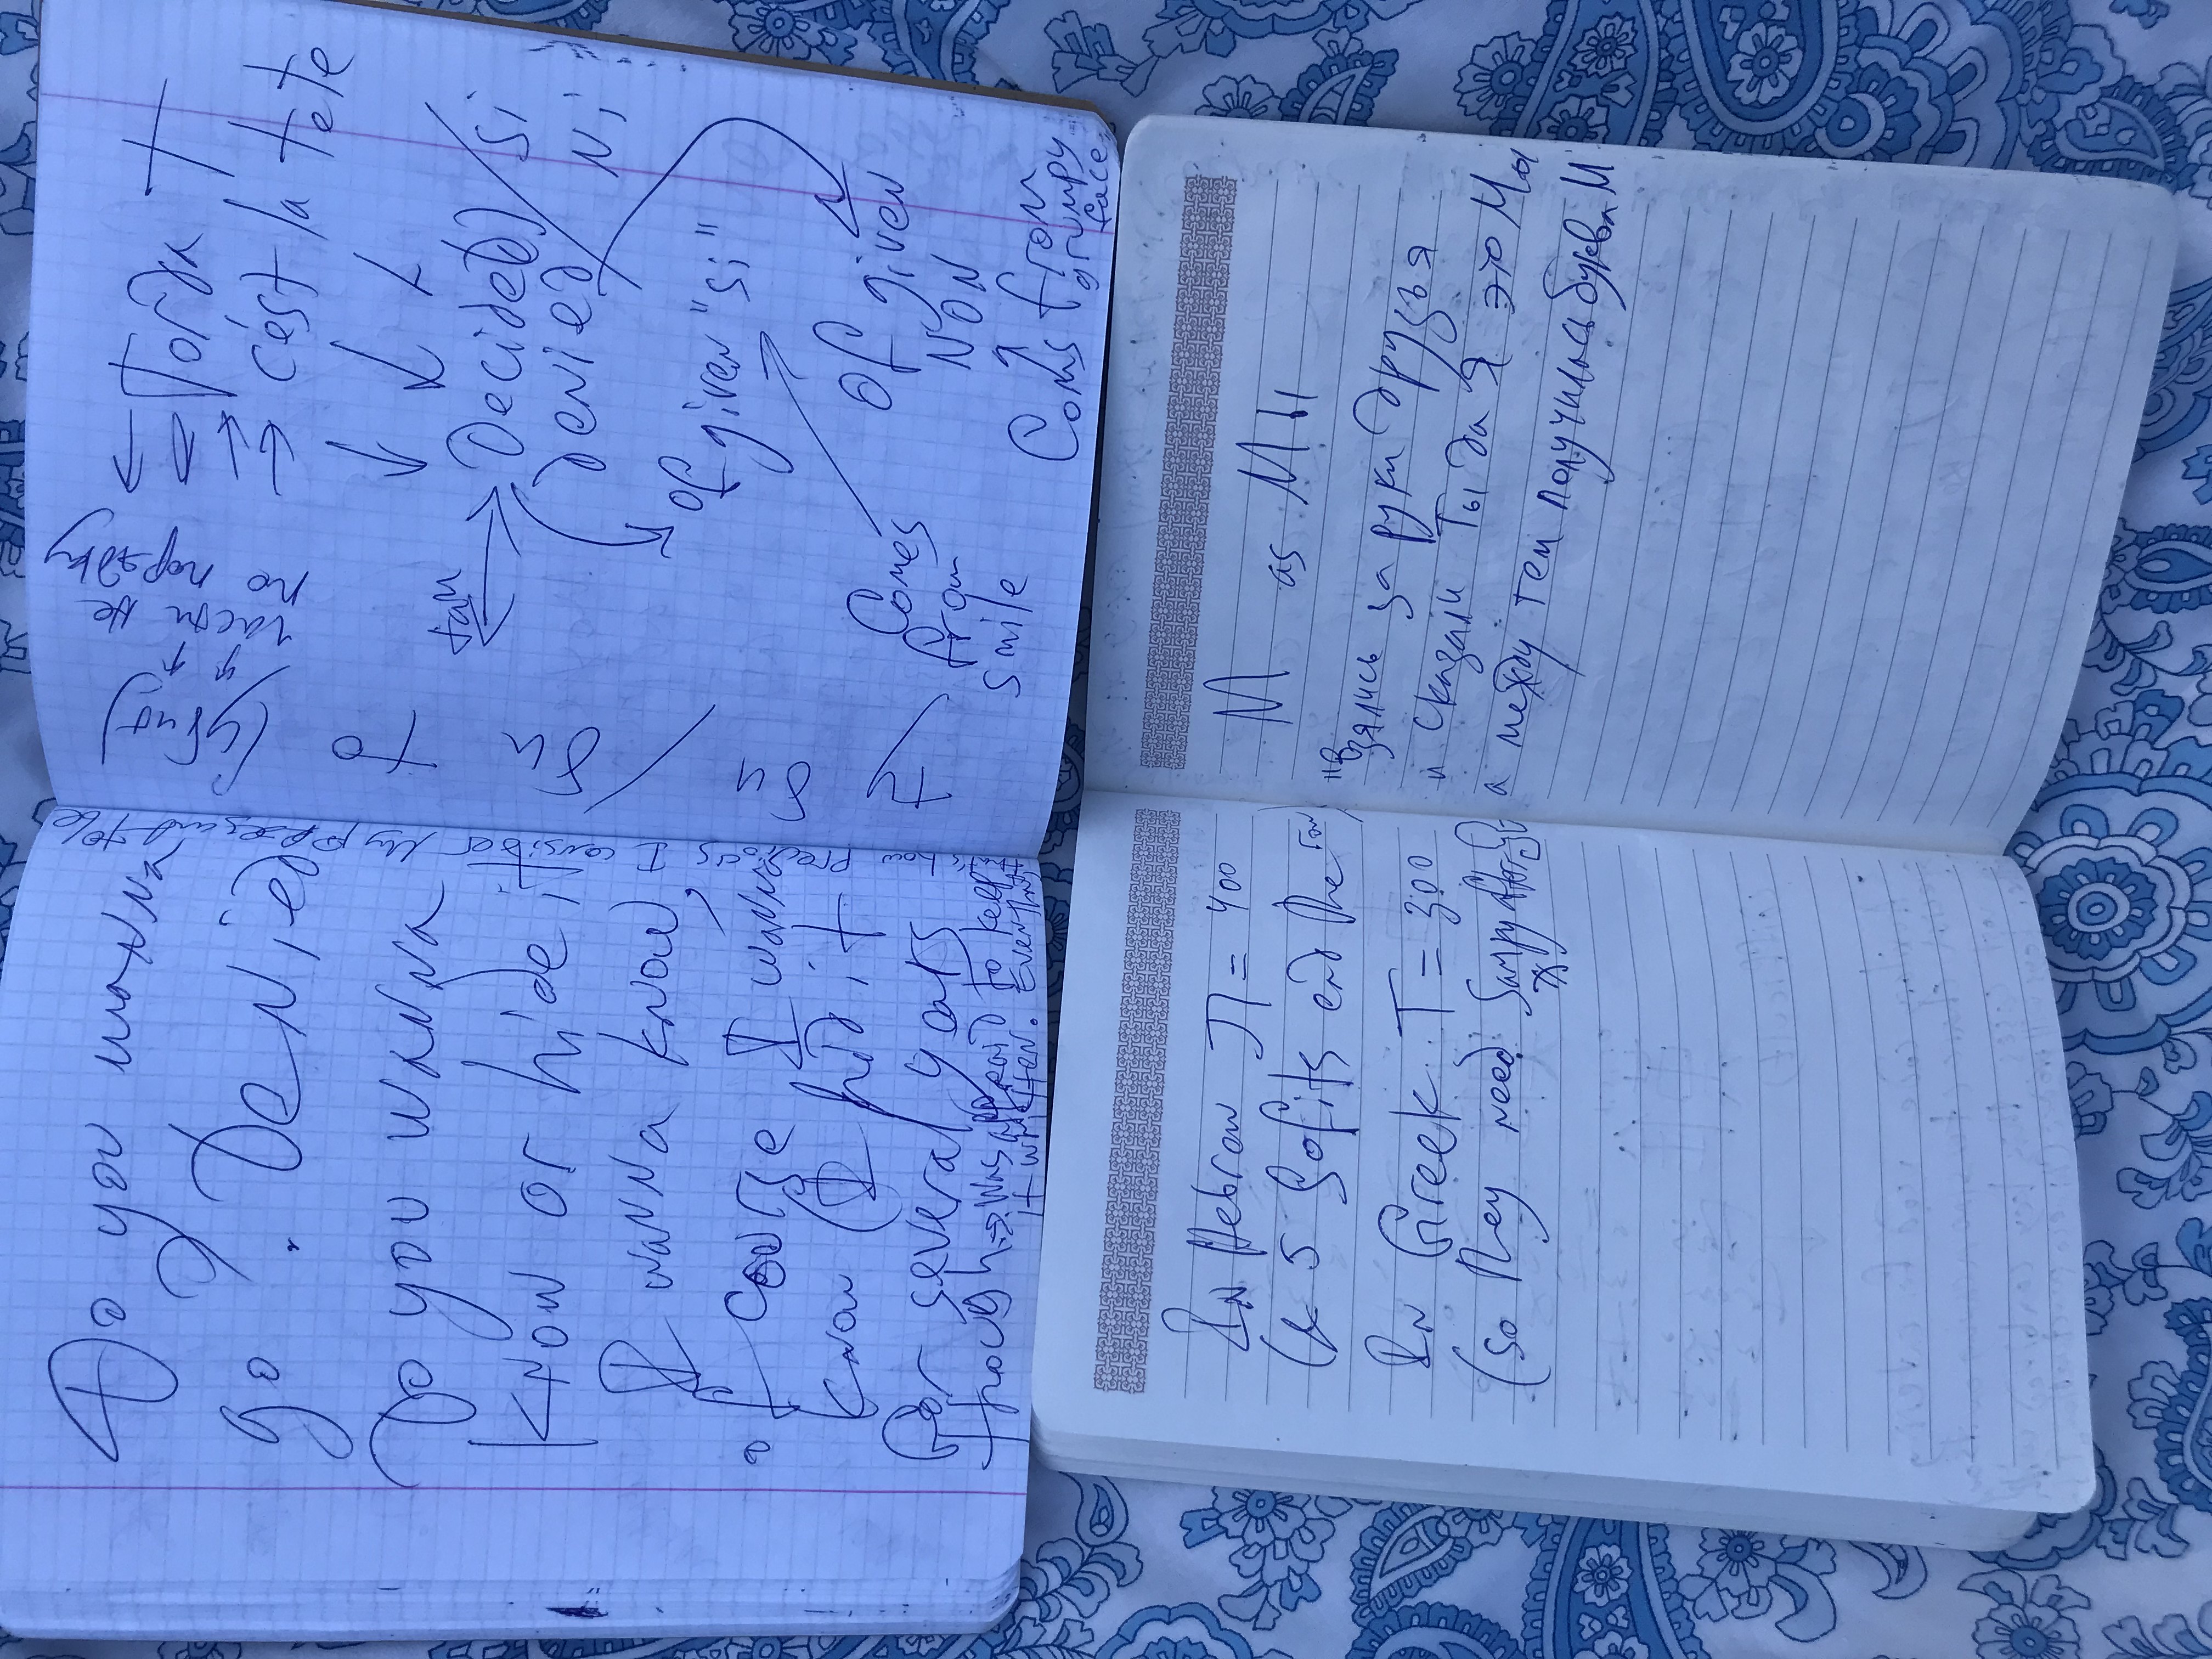 Do you wanna
go? Denied
Do you wanna
know or hide it
I wanna know,
of course I wanna
know (I hid it
for several years
though → Was afraid to keep
it written. Everything
that's how previous I consider my present to be
ту / би / би то (убит)
у ↑
части не
по порядку
← Тогда T
c'est la tete
tau
Decide(d) / si
denied / ni
of given "si"
Comes
from
smile
Of given
NON
Coms from
grumpy
face
In Hebrow ת = 400
(& 5 Sofits end the row)
In Greek T = 300
(so they need Sampy after
M as Мы
"Взялись за руки друзья
и сказали Ты да Я это Мы
а между тем получилась буква М